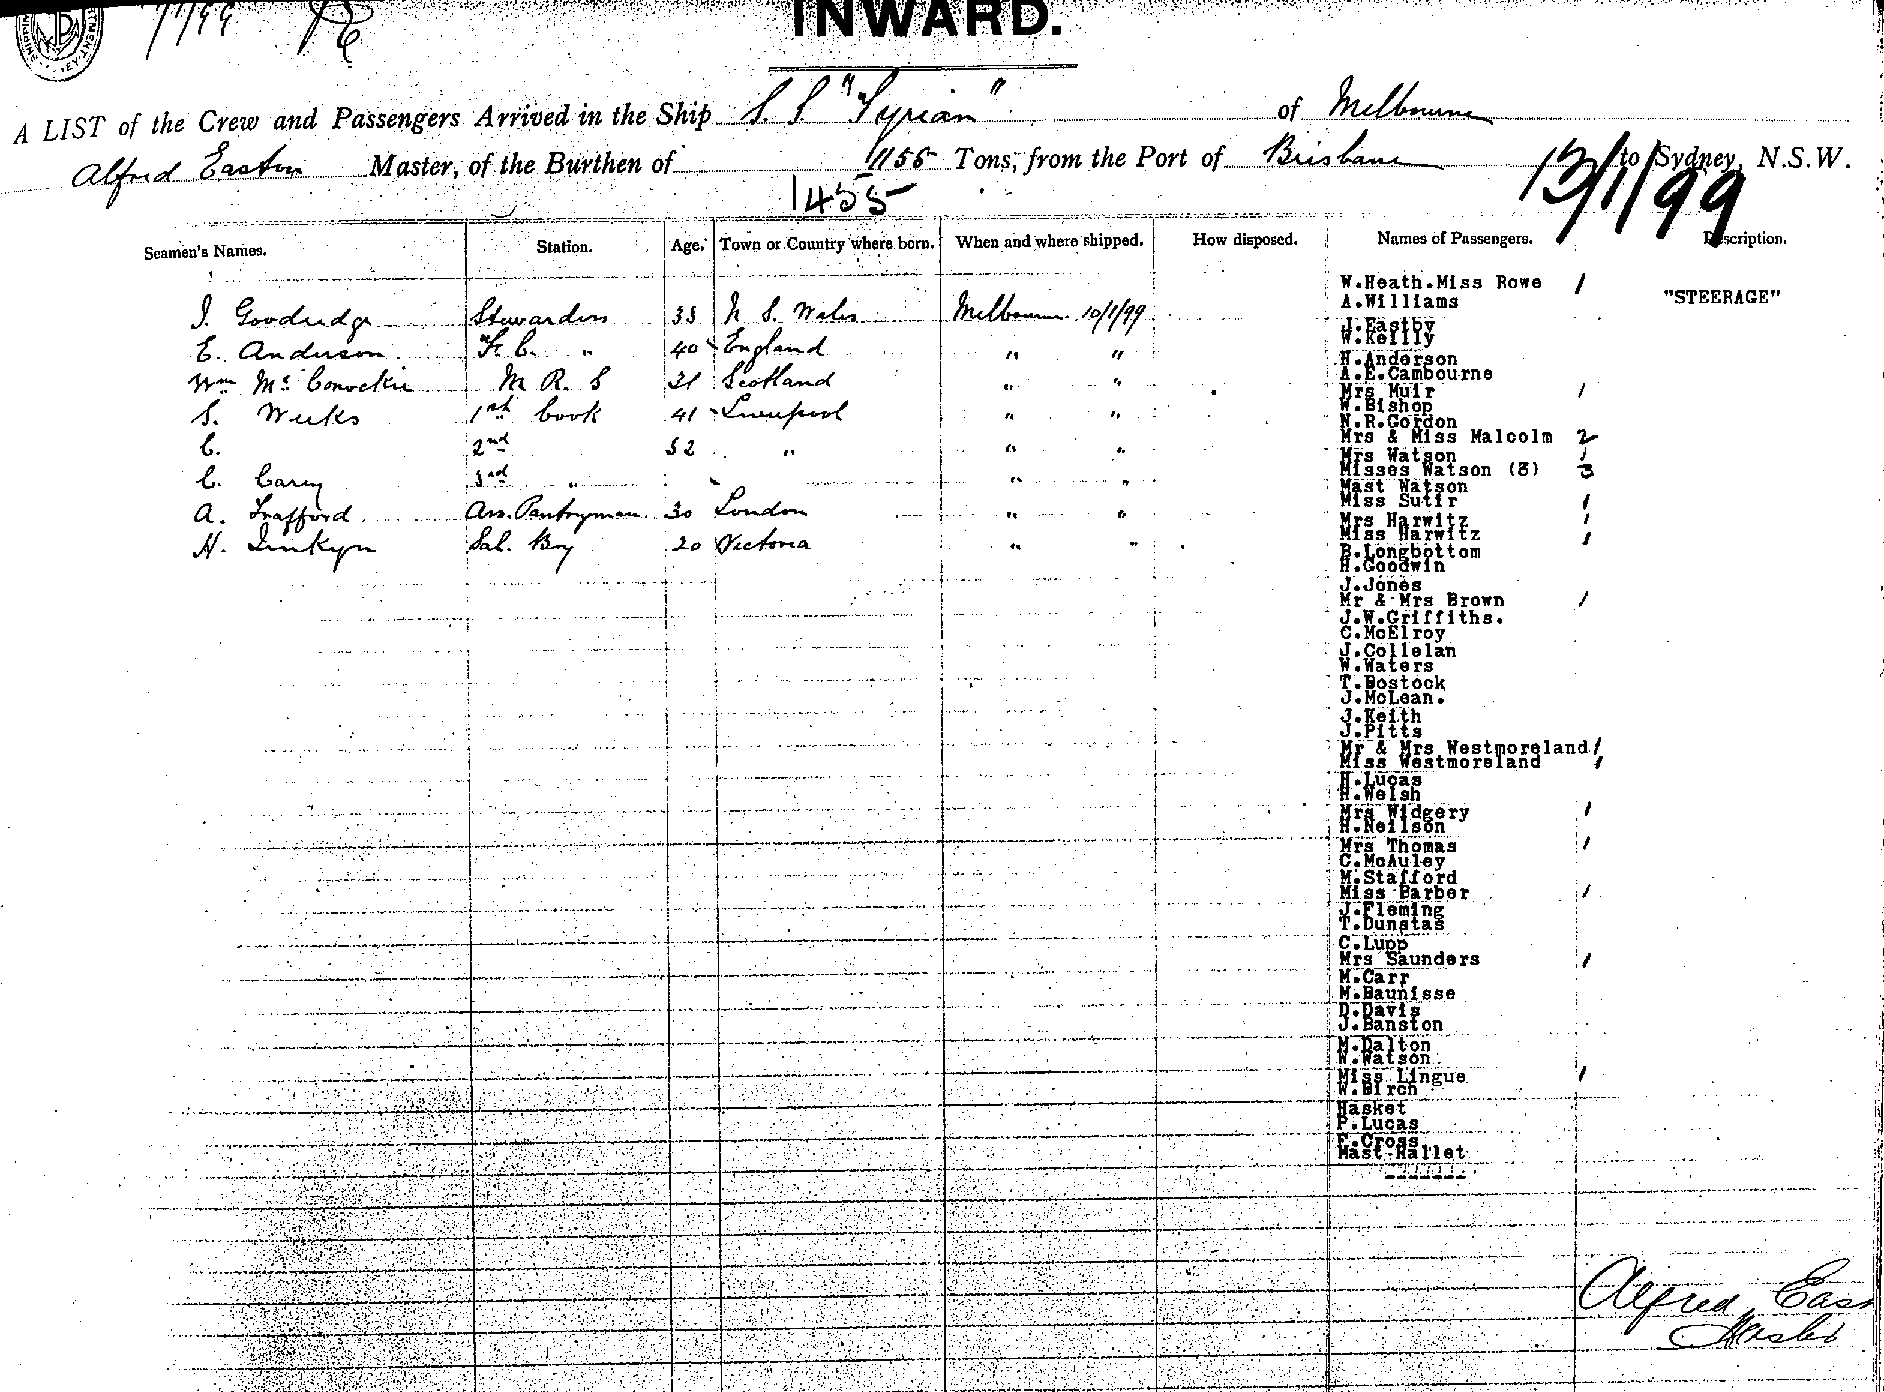 INWARD.
A LIST of the Crew and Passengers Arrived in the Ship S S "Tyrian" of Melbourne
Alfred Easton Master, of the Burthen of 1155 Tons, from the Port of Brisbane to Sydney, N.S.W.
1455
13/1/99
Seamen's Names. Station. Age. Town or Country where born. When and where shipped. How disposed. Names of Passengers. Description.
W.Heath.Miss Rowe 1
"STEERAGE"
A.Williams
J. Goodridge Stewardess 33 N S. Wales Melbourne 10/1/99
J.Eastby
W.Reilly
E. Anderson F. C. " 40 England " "
H.Anderson
A.E.Cambourne
Wm Mc M R. S 21 Scotland " "
Mrs Muir 1
W.Bishop
S. Weeks 1st Cook 41 Liverpool " "
N.R.Gordon
Mrs & Miss Malcolm 2
C. 2nd 52 " " "
Mrs Watson 1
Misses Watson (3) 3
C. Carey 3rd " " "
Mast Watson
Miss Sutir 1
A. Trafford Ass. Pantryman 30 London " "
Mrs Harwitz 1
Miss Harwitz 1
H. Sal. Boy 20 Victoria " "
B.Longbottom
H.Goodwin
J.Jones
Mr & Mrs Brown 1
J.W.Griffiths.
C.McElroy
J.Collelan
W.Waters
T.Bostock
J.McLean.
J.Keith
J.Pitts
Mr & Mrs Westmoreland 1
Miss Westmoreland 1
H.Lucas
H.Welsh
Mrs Widgery 1
H.Neilson
Mrs Thomas 1
C.McAuley
M.Stafford
Miss Barber 1
J.Fleming
T.Dunstas
C.Lupp
Mrs Saunders 1
M.Carr
M.Baunisse
D.Davis
J.Banston
M.Dalton
W.Watson
Miss Lingue 1
W.Birch
Hasket
P.Lucas
F.Cross
Mast Hallet
Alfred East
Master